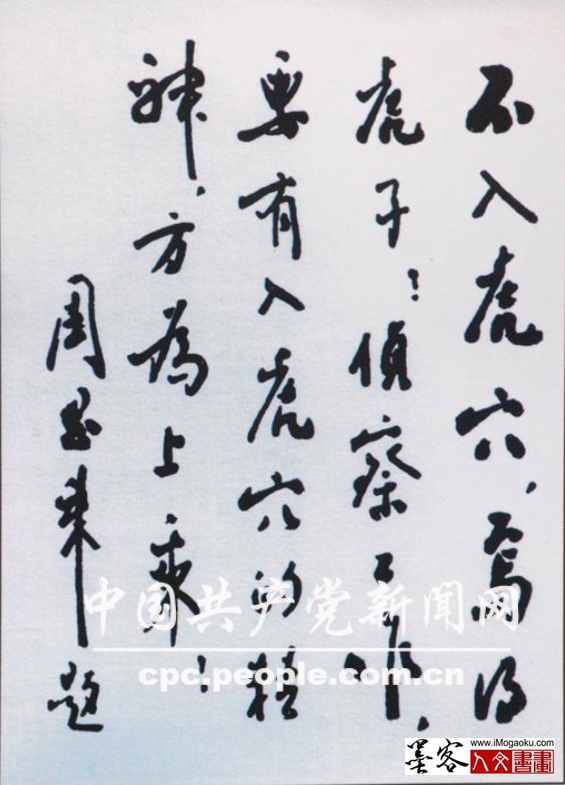 不入虎穴，焉得
虎子！偵察工作，
要有入虎穴的精
神，方為上乘！
周恩来題
中国共产党新闻网
cpc.people.com.cn
墨客
www.iMogaoku.com
人文書畫